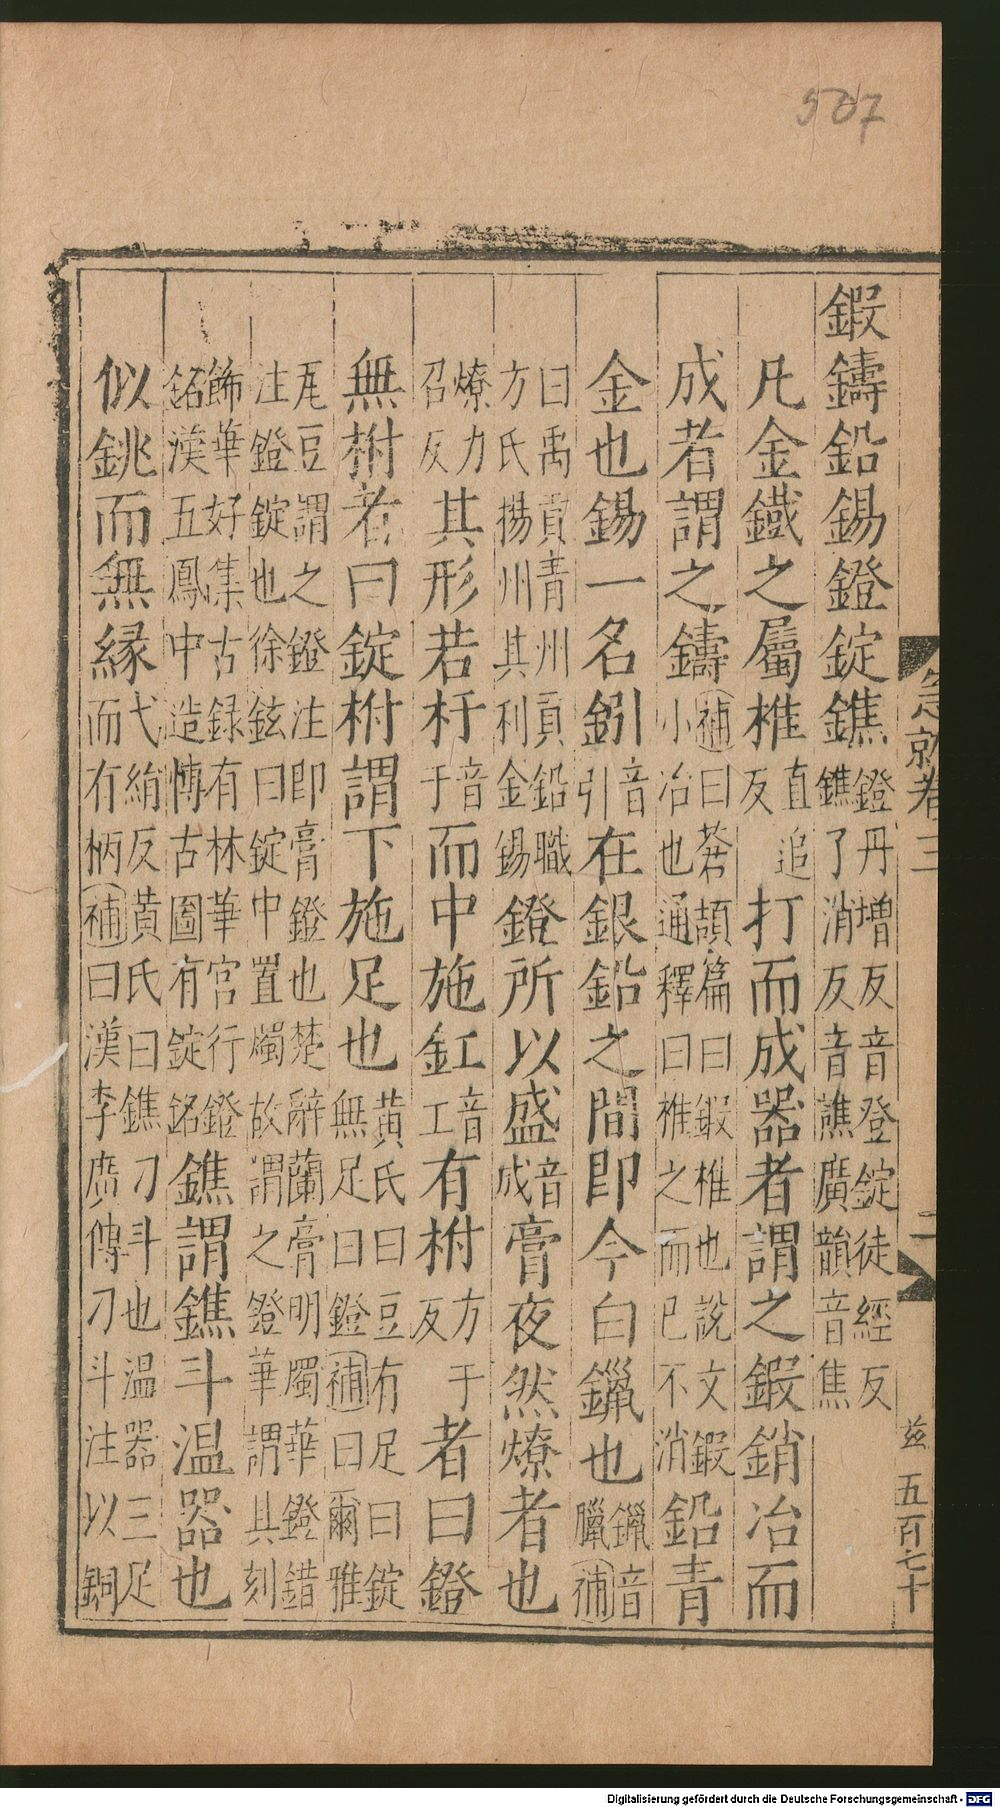 507
鍛鑄鉛錫鐙錠鐎鐙丹增反音登錠徒經反鐎了消反音譙廣韻音焦
凡金鐵之屬椎直追反打而成器者謂之鍛銷冶而
成者謂之鑄補曰蒼頡篇曰鍛椎也說文鍛小冶也通釋曰椎之而已不消鉛青
金也錫一名鈏音引在銀鉛之間即今白鑞也鑞音臘補
曰禹貢青州貢鉛職方氏揚州其利金錫鐙所以盛音成膏夜然燎者也
燎力召反其形若杅音于而中施釭音工有柎方于反者曰鐙
無柎者曰錠柎謂下施足也黃氏曰豆有足曰錠無足曰鐙補曰爾雅
瓦豆謂之鐙注即膏鐙也楚辭蘭膏明燭華鐙錯注鐙錠也徐鉉曰錠中置燭故謂之鐙華謂其刻
飾華好集古録有林華宮行鐙銘漢五鳳中造博古圖有錠銘鐎謂鐎斗温器也
似銚而無緣弋絢反黃氏曰鐎刁斗也温器三足而有柄補曰漢李廣傳刁斗注以銅
急就卷三
二
茲
五百七十
Digitalisierung gefördert durch die Deutsche Forschungsgemeinschaft - DFG